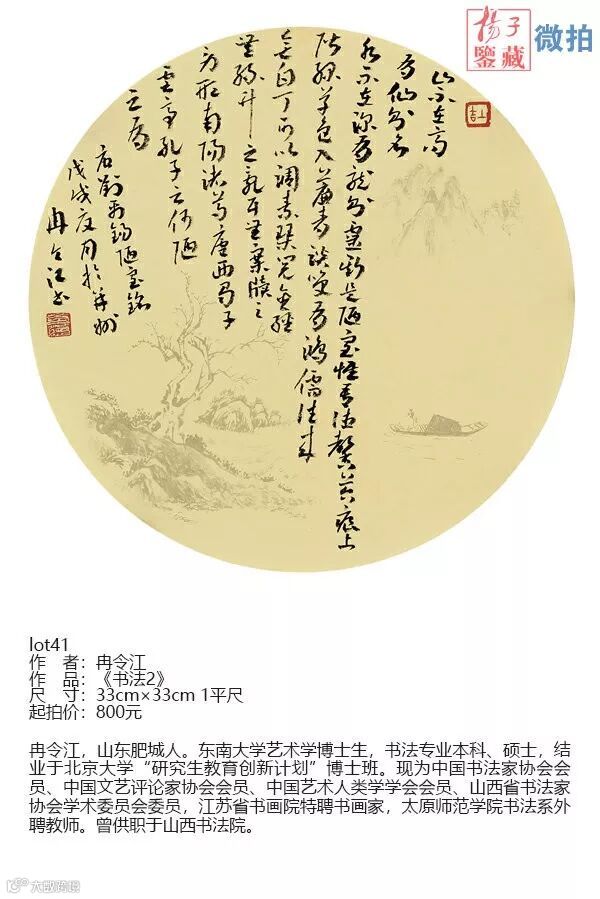 楊子
鑒藏
微拍
山不在高
有仙則名
水不在深有龍則靈斯是陋室惟吾德馨苔痕上
階綠草色入簾青談笑有鴻儒往來
無白丁可以調素琴閱金經
無絲竹之亂耳無案牘之
勞形南陽諸葛廬西蜀子
雲亭孔子云何陋
之有
右劉禹錫陋室銘
戊戌夏月於并州
冉令江書
lot41
作 者：冉令江
作 品：《书法2》
尺 寸：33cm×33cm 1平尺
起拍价：800元
冉令江，山东肥城人。东南大学艺术学博士生，书法专业本科、硕士，结
业于北京大学“研究生教育创新计划”博士班。现为中国书法家协会会
员、中国文艺评论家协会会员、中国艺术人类学学会会员、山西省书法家
协会学术委员会委员，江苏省书画院特聘书画家，太原师范学院书法系外
聘教师。曾供职于山西书法院。
大数跨境